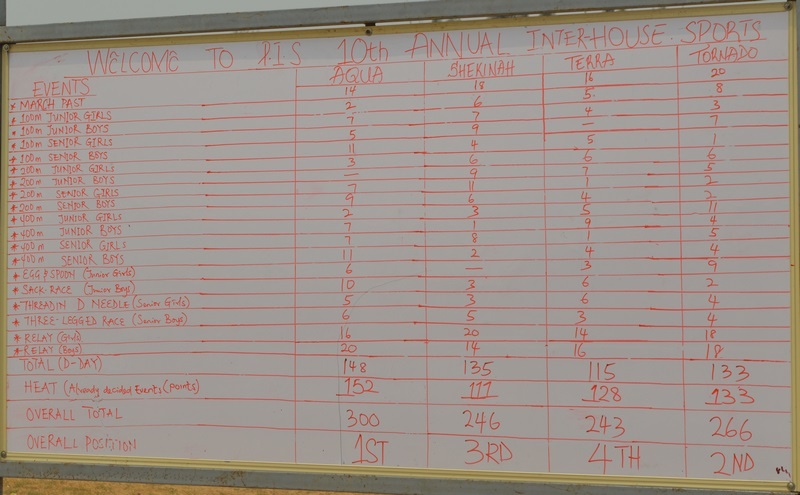 WELCOME TO P.I.S 10th ANNUAL INTER-HOUSE SPORTS
EVENTS AQUA SHEKINAH TERRA TORNADO
* MARCH PAST 14 18 16 20
* 100m JUNIOR GIRLS 2 6 5 8
* 100m JUNIOR BOYS 7 7 4 3
* 100m SENIOR GIRLS 5 9 — 7
* 100m SENIOR BOYS 11 4 5 1
* 200m JUNIOR GIRLS 3 6 6 6
* 200m JUNIOR BOYS — 9 7 5
* 200m SENIOR GIRLS 7 11 1 2
* 200m SENIOR BOYS 9 6 4 2
* 400m JUNIOR GIRLS 2 3 5 11
* 400m JUNIOR BOYS 7 1 9 4
* 400m SENIOR GIRLS 7 8 1 5
* 400m SENIOR BOYS 11 2 4 4
* EGG & SPOON (Junior Girls) 6 — 3 9
* SACK-RACE (Junior Boys) 10 3 6 2
* THREADIN D NEEDLE (Senior Girls) 5 3 6 4
* THREE-LEGGED RACE (Senior Boys) 6 5 3 4
* RELAY (Girls) 16 20 14 18
* RELAY (Boys) 20 14 16 18
TOTAL (D-DAY) 148 135 115 133
HEAT (Already decided Events (points) 152 111 128 133
OVERALL TOTAL 300 246 243 266
OVERALL POSITION 1ST 3RD 4TH 2ND